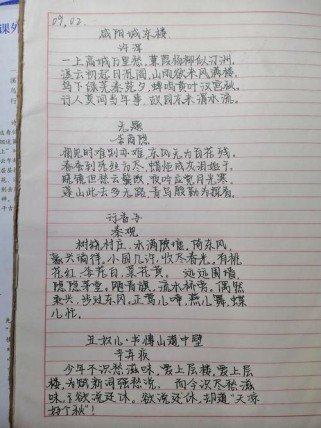 09.02.
咸阳城东楼
许浑
一上高城万里愁，蒹葭杨柳似汀洲。
溪云初起日沉阁，山雨欲来风满楼。
鸟下绿芜秦苑夕，蝉鸣黄叶汉宫秋。
行人莫问当年事，故国东来渭水流。
无题
李商隐
相见时难别亦难，东风无力百花残。
春蚕到死丝方尽，蜡炬成灰泪始干。
晓镜但愁云鬓改，夜吟应觉月光寒。
蓬山此去多无路，青鸟殷勤为探看。
行香子
秦观
树绕村庄，水满陂塘，倚东风，
豪兴徜徉，小园几许，收尽春光。有桃
花红，李花白，菜花黄。 远远围墙，
隐隐茅堂。飏青旗，流水桥旁。偶然
乘兴，步过东冈，正莺儿啼，燕儿舞，蝶
儿忙。
丑奴儿·书博山道中壁
辛弃疾
少年不识愁滋味，爱上层楼，爱上层
楼，为赋新词强愁说。 而今识尽愁滋
味，欲说还休，欲说还休，却道“天凉
好个秋”！
课外